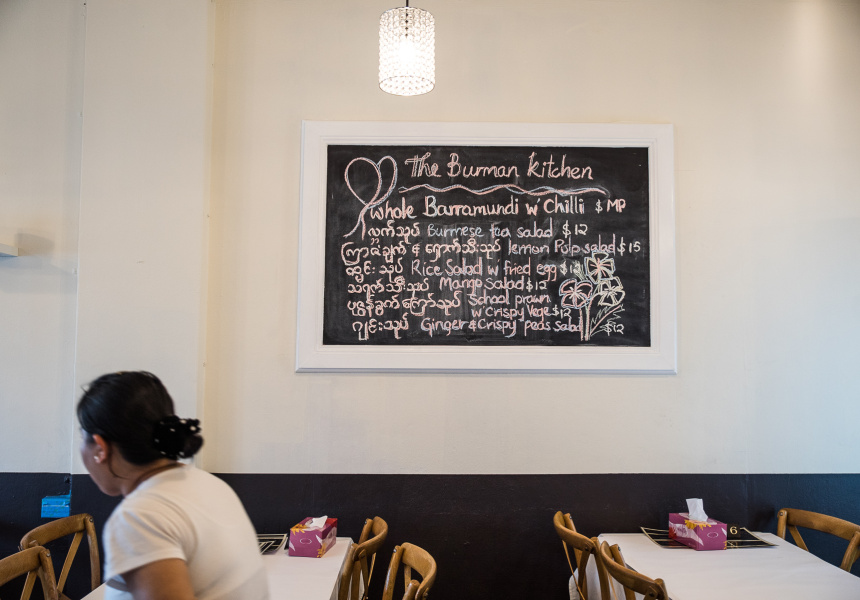 The Burman kitchen
whole Barramundi w' Chilli $ MP
လက်သုပ် Burmese tea salad $12
ကြာဇံချက် & ရှောက်သီးသုပ် lemon Pulp salad $15
ထမင်းသုပ် Rice Salad w fried egg $12
သရက်သီးသုပ် Mango Salad $12
ပုဇွန်ခွက်ကြော်သုပ် School prawn
w Crispy Vege $12
ဂျင်းသုပ် Ginger & Crispy peas Salad $12
6